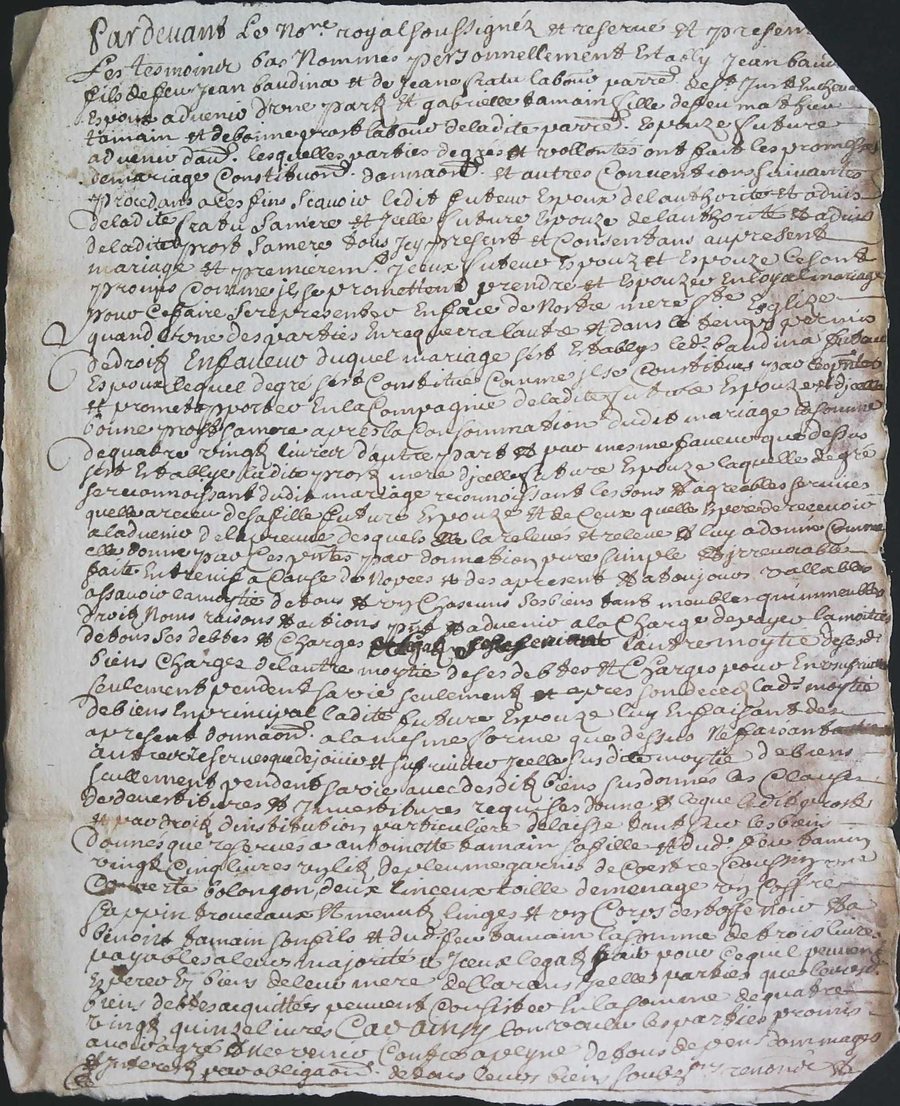 Pardevant Le No.re royal soussignéz et reservé et presen
Les tesmoings bas Nommés personnellement Estably Jean baud
fils de feu Jean baudina et de Jeane fratu labour parre. de st Just En
Espoux advenir d'une part Et gabrielle tamain fille de feu mathieu
tamain et de bonne prost labour de ladite parre. Espouze future
advenir dau. lesquelles parties de grés et vollontés ont fait les promesses
de mariage Constituon. donnaon. et autres Conventions suivantes
procedans a ces fins scavoir ledit futeur Espoux de l'authorité et advis
de ladite fratu sa mere et Icelle future Espouze de l'authorité et advis
de ladite prost sa mere tous Icy present et Consentans au present
mariage et premierem.t Iceux futeur Espoux et Espouze ce sont
promis Comme Ils se promettent prendre et Espouzer En loyal mariage
pour Ce faire se representer En face de Nostre mere ste Eglize
quand une des parties En requerera l'autre et dans le temps permis
de droit En faveur duquel mariage s'est Estably led. baudina futeur
Espoux lequel de gré s'est Constitué Comme Il se Constitue par Ces pntes
et promet porter En la Compagnie de ladite future Espouze et d'icelle
bonne prost sa mere apres la Consommation dudit mariage la somme
de quatre vingt livres d'autre part et par mesme faveur que dessus
s'est Establye ladite prost mere d'icelle future Espouze laquelle de gré
se reconnoissant dudit mariage reconnoissant les bons et agreables services
quelle a receu de sa fille future Espouze et de Ceux quelle Espere de recevoir
a l'advenir de la preuve desquels Elle la releves et releve et luy a donné Comme
elle donne par Ces pntes par donnation pure simple et irrevocable
faite Entre vif a Cause de Nopces et des apresent et a toujours vallable
assavoir la moytie de tous et un Chascuns ses biens tant meubles qu'immeubles
droits Noms raisons et actions pnt et advenir a la Charge de payer la moitié
de tous ses debtes et Charges l'autre moytie de ses d.
biens Charges de l'autre moytie de ses debtes et Charges pour En
seulement pendent sa vie seulement et apres son deces lad. moytie
de biens En principal ladite future Espouze luy En faisant des
apresent donnaon. a la mesme forme que dessus Ne faisant
autre reserve que de jouir et Icelle susdite moytie de biens
seullement pendent sa vie avec desdits biens susdonnes les Clauses
de devestitures et Investitures requises donne et legue ladite prost
et par droit d'institution particuliere delaisse tant sur les biens
donnes que reserves a antoinette tamain sa fille et dud. feu tamain
vingt Cinq livres un lit de plume garni de Coussin une
Couverte deux linceux toille de menage un Coffre
sappin trousseaux et menuz linges et un Corps d'estoffe noir et a
benoit tamain son fils et dud. feu tamain la somme de trois livres
payables a leur majorité et Iceux legats fait pour Ce quil peuvent
Esperer Es biens de leur mere declarans Icelles parties que leurs
biens debtes acquittés peuvent Consister En la somme de quatre
vingt quinze livres Car ainsy les parties promis
avoir agré et Ne venir Contre a peyne de tous despens dommages
et Interetz par obligaon. de tous leurs biens renonce